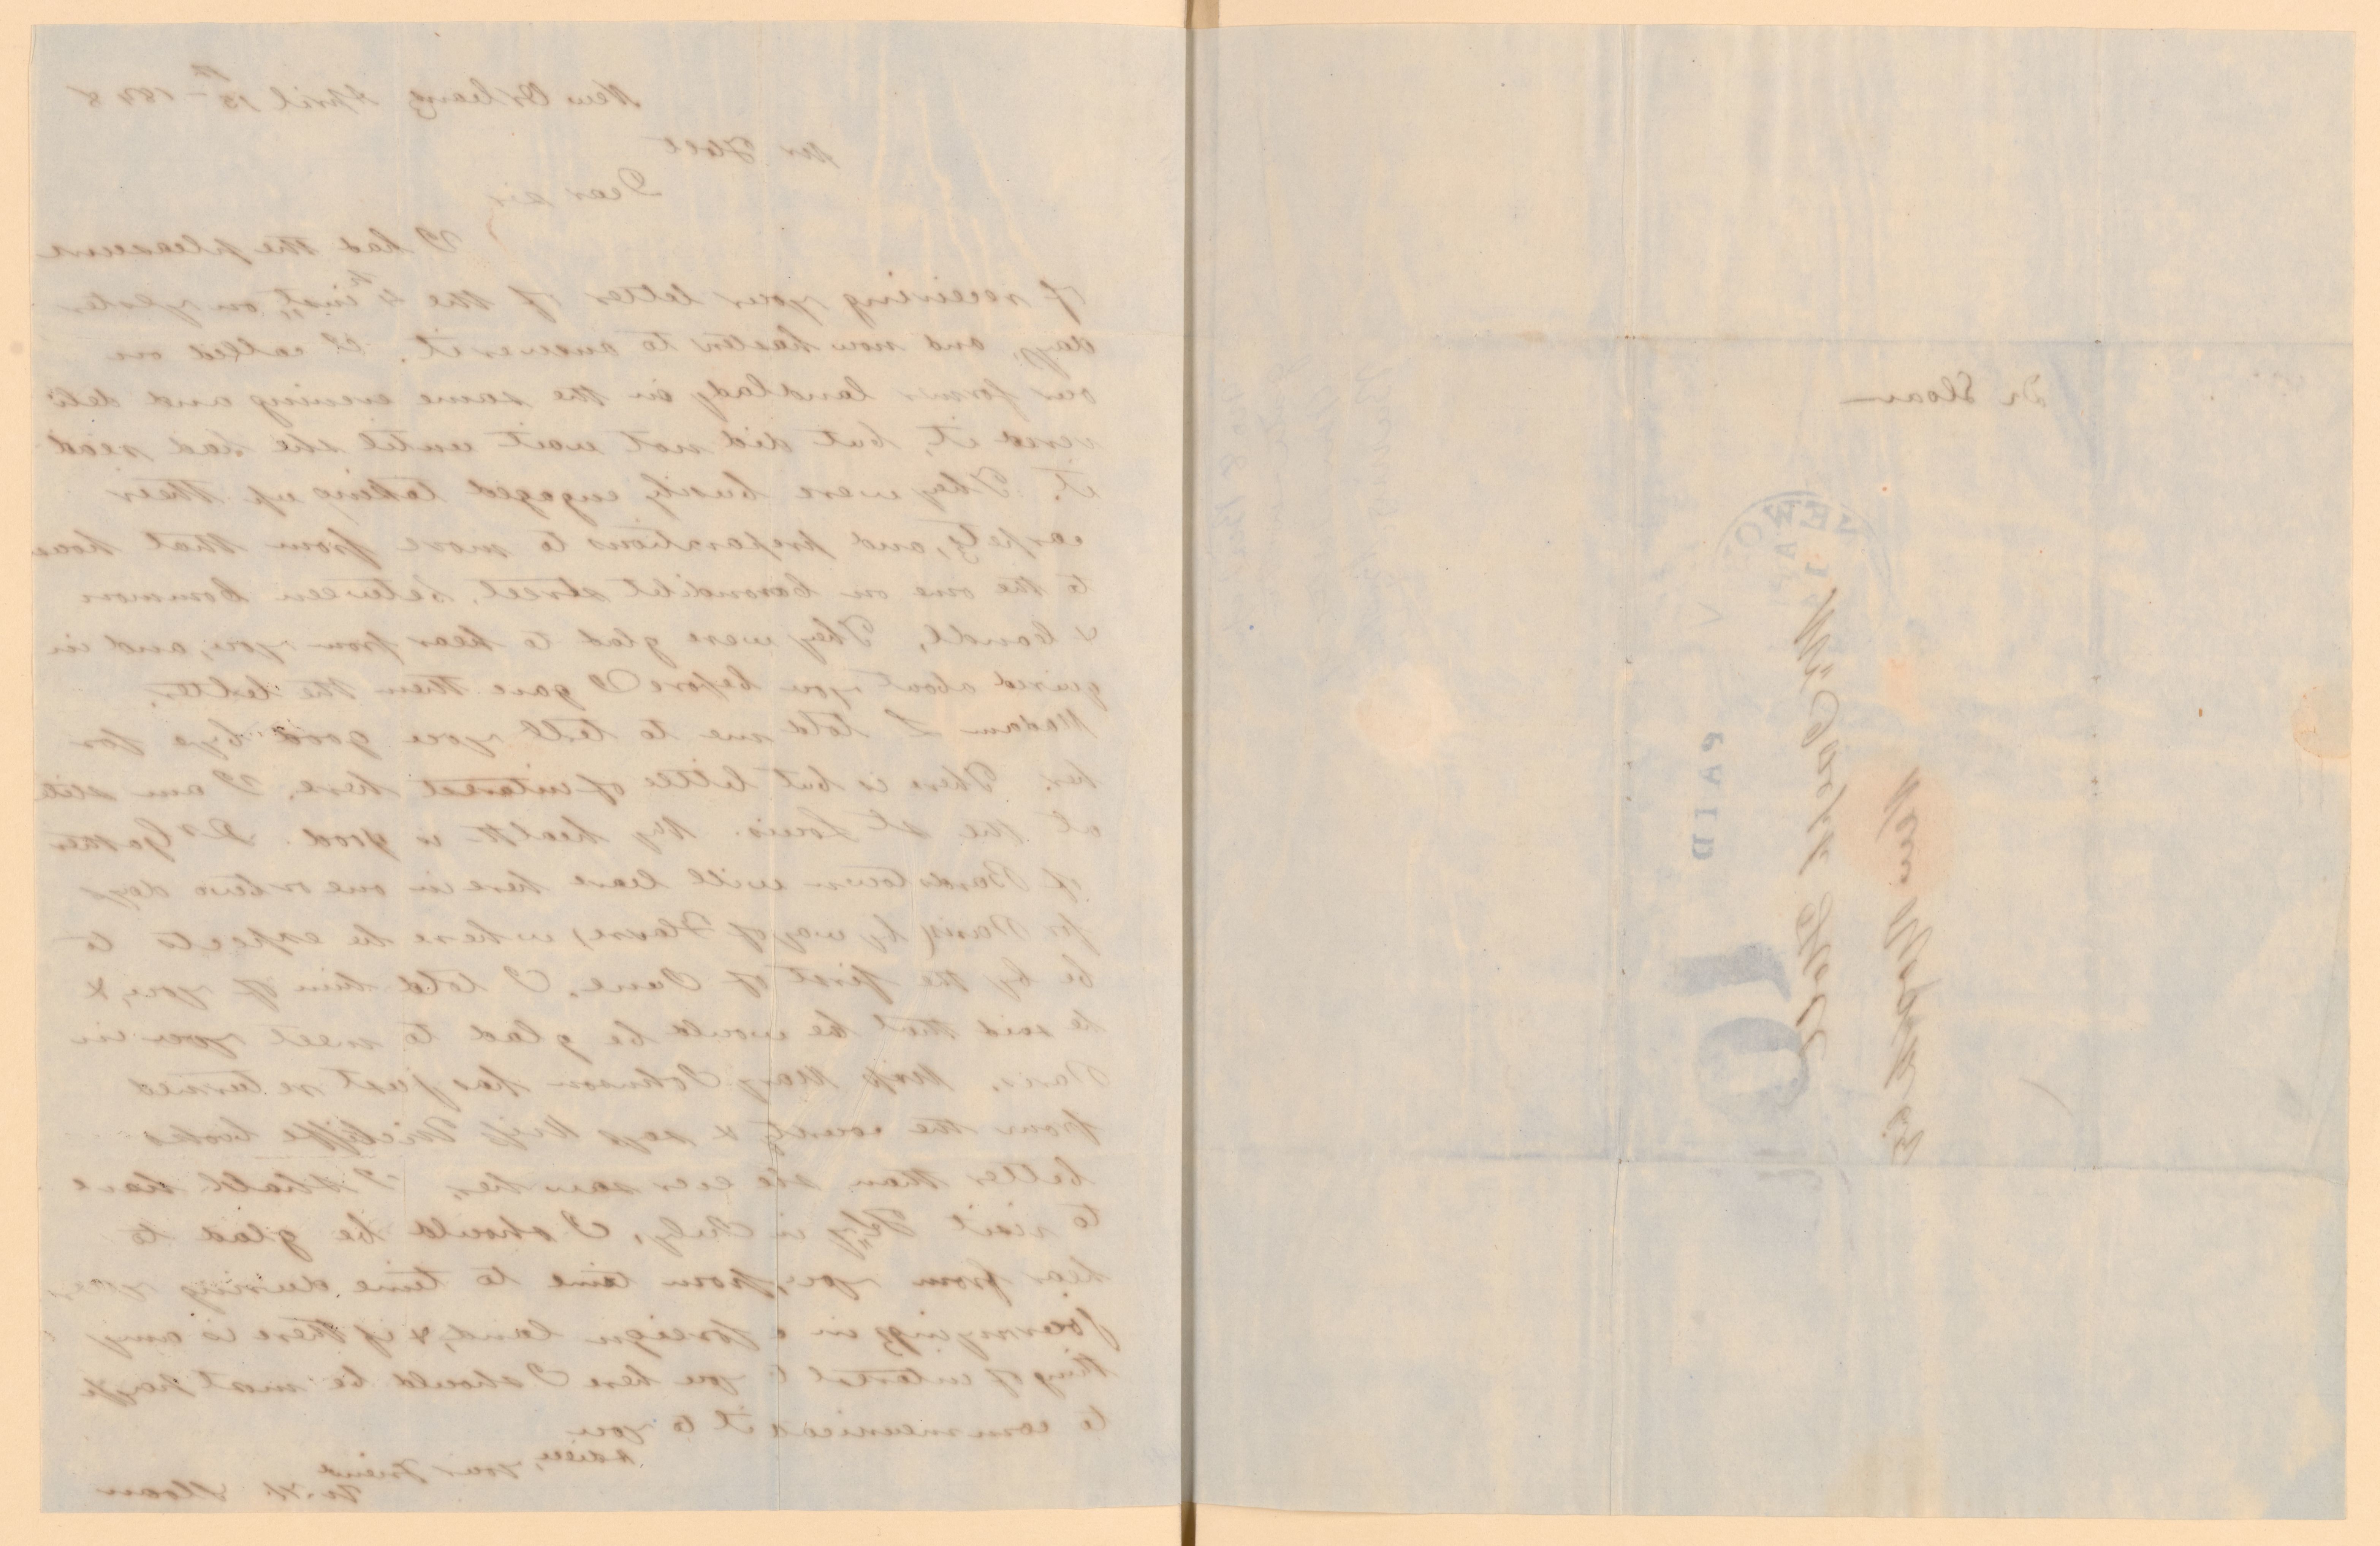 New Orleans April 13th 1848
Mr Holt
Dear sir
I had the pleasure
of receiving your letter of the 4th inst, on yester
day, and now hasten to answer it. I called on
our former landlady in the same evening and deli
vered it, but did not wait until she had read
it. They were busily engaged taking up their
carpets, and preparations to move from that house
to the one on Carondilet street, between Common
& Candl, They were glad to hear from you, and in
quired about you before I gave them the letter,
Madam L told me to tell you good bye for
her. There is but little of interest here, I am still
at the St Louis. My health is good. Dr
of Bardstown will leave here in one or two days
for Paris (by way of Havre) where he expects to
be by the first of June. I told him of you, &
he said that he would be glad to meet you in
Paris. Miss Mary Johnson has just returned
from the county & says Miss Wicliffe looks
better than she ever saw her, I shall have
to visit Ky in July, I should be glad to
hear from you, from time to time during your
journying in a foreign land, & if there is any
thing of interest to you here I should be most happy
to communicat it to you
adieu, your friend
W. H Sloan
Dr Sloan
NEW O
PAID
10